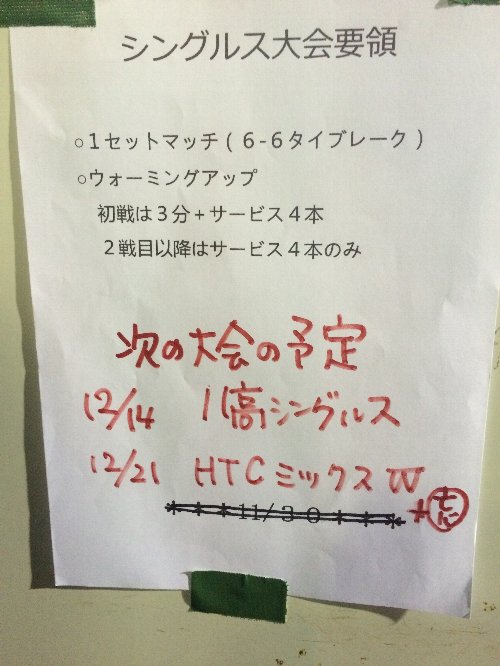 シングルス大会要領
○1セットマッチ(6-6タイブレーク)
○ウォーミングアップ
初戦は3分+サービス4本
2戦目以降はサービス4本のみ
次の大会の予定
12/14 川高シングルス
12/21 HTCミックスW
***11/30***